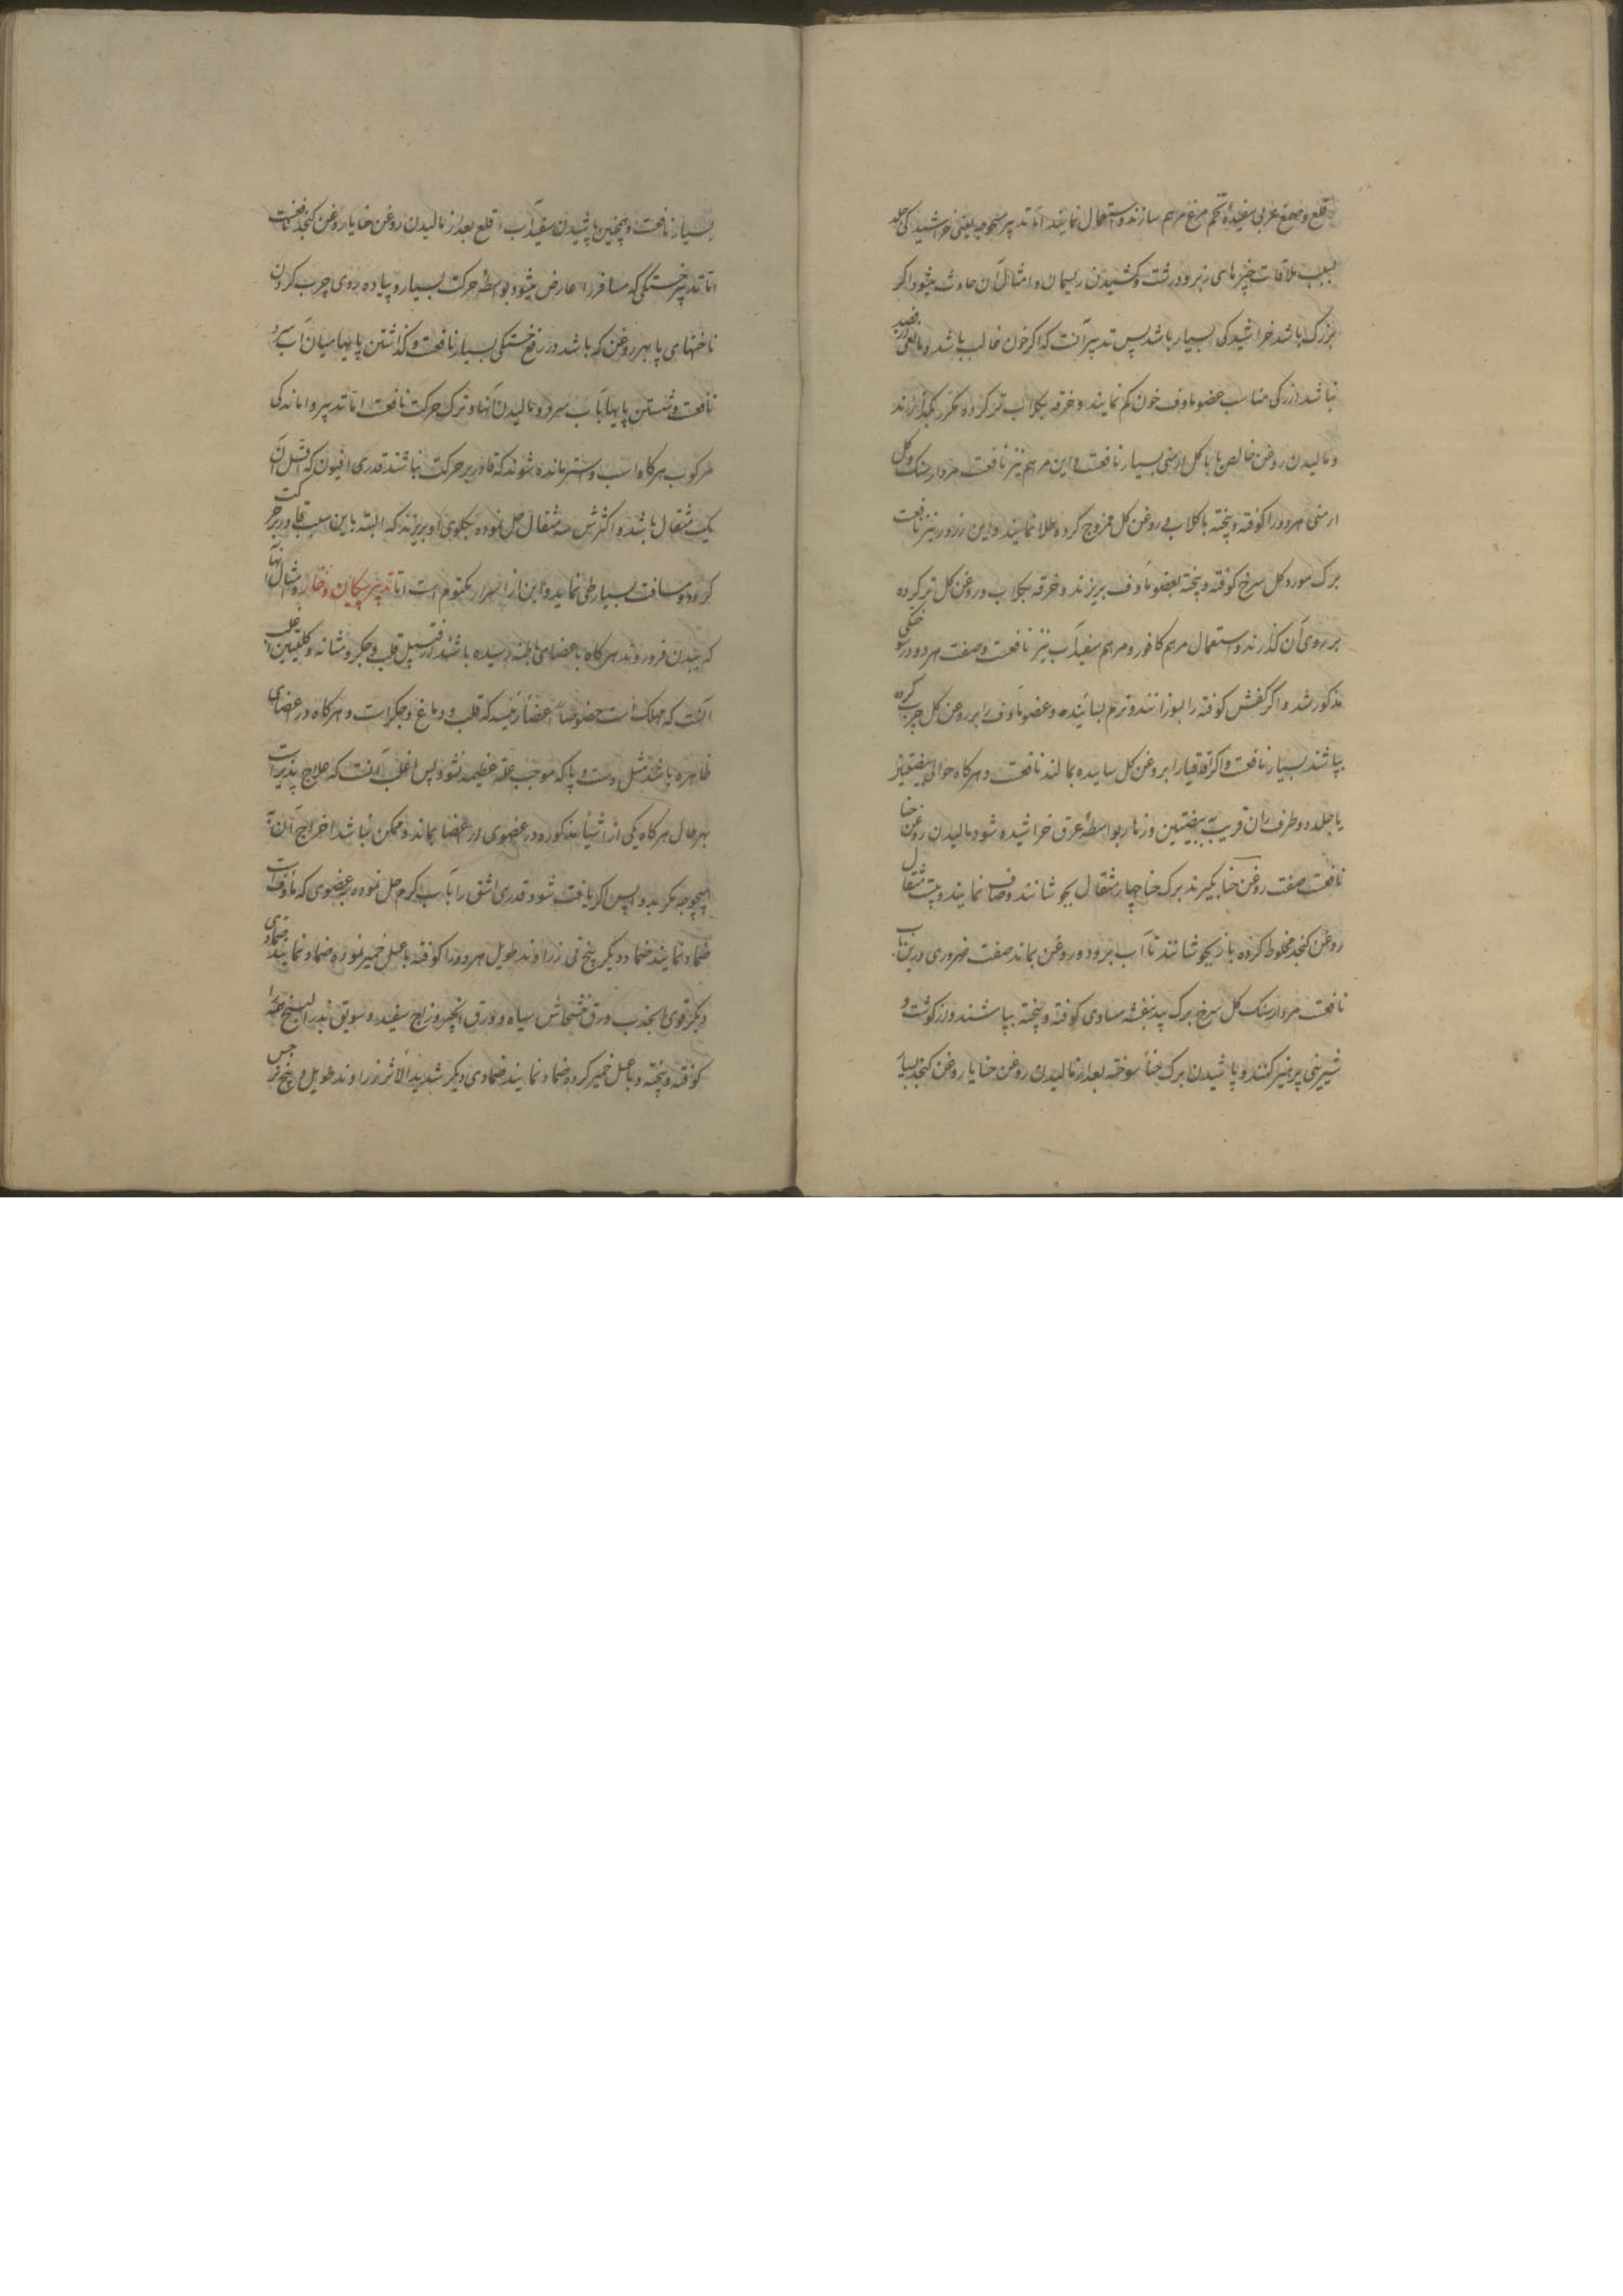 قلع و صمغ عربی سفیدهٔ تخم مرغ مرهم سازند و استعمال نمایند اما تدبیر سحوجه یعنی خراشیدگی جلد
بسبب ملاقات چیزهای زبر و درشت و کشیدن ریسمان و امثال آن حادث میشود اگر
بزرگ باشد خراشیدگی بسیار باشد پس تدبیر آنست که اگر خون غالب باشد و مانعی در فصد
نباشد از رگی مناسب عضو ماوف خون کم نمایند و خرقه بگلاب تر کرده مکرر بگذرانند
و مالیدن روغن خالص با با گل ارمنی بسیار نافعست و این مرهم نیز نافعست مردارسنک و گل
ارمنی هر دو را کوفته و بیخته با گلاب و روغن گل ممزوج کرده طلا نمایند و این ذرور نیز نافعست
برک مورد گل سرخ کوفته و بیخته بعضو ماوف بریزند و خرقه بگلاب و روغن گل تر کرده
بر روی آن گذارند و استعمال مرهم کافور و مرهم سفیدآب نیز نافعست و صفت هر دو در سوختگی
مذکور شد و اگر کفش کوفته را بسوزانند و نرم بسایند و عضو ماوف را بروغن گل چرب کرده
بپاشند بسیار نافعست و اگر اقاقیا را بروغن گل ساییده بمالند نافعست و هرگاه حوالی بیضتین
یا جلد دو طرف ران قریب به بیضتین و زهار بواسطهٔ عرق خراشیده شود مالیدن روغن حنا
نافعست صفت روغن حنا بگیرند برک حنا چهار مثقال بجوشانند و صاف نمایند و بیست مثقال
روغن کنجد مخلوط کرده باز بجوشانند تا آب برود و روغن بماند صفت ضروری درین باب
نافعست مردارسنک گل سرخ برک بید بنفشه مساوی کوفته و بیخته بپاشند و از گوشت و
شیرینی پرهیز کنند و پاشیدن برک حنا سوخته بعد از مالیدن روغن حنا یا روغن کنجد بسیار
بسیار نافعست و همچنین پاشیدن سفیدآب قلع بعد از مالیدن روغن حنا یا روغن کنجد نافعست
اما تدبیر خستگی که مسافر را عارض میشود بواسطهٔ حرکت بسیار و پیاده روی چرب کردن
ناخنهای پا بهر روغن که باشد در رفع خستگی بسیار نافعست و گذاشتن پایها میان آب سرد
نافعست و شستن پایها بآب سرد و مالیدن آنها و ترک حرکت نافعست اما تدبیر واماندگی
مرکوب هرگاه اسب و استر مانده شوند که قادر بر حرکت نباشند قدری افیون که اقل آن
یک مثقال باشد و اکثرش سه مثقال حل نموده بگلوی او بریزند که البته باین سبب قادر بر حرکت
گردد و مسافت بسیار طی نماید و این از اسرار مکتوم است اما تدبیر پیکان و خار و امثال آنها
که ببدن فرو روند هرگاه باعضای باطنه رسیده باشد از قبیل قلب و جگر و مثانه و کلیتین اغلب
آنست که مهلک است خصوصا اعضا رئیسه که قلب و دماغ و جگر است و هرگاه در اعضای
ظاهره باشد مثل دست و پا که موجب علة عظیمه نشود پس اغلب آنست که علاج پذیر است
بهر حال هرگاه یکی از اشیا مذکوره در عضوی از اعضا بماند و ممکن نباشد اخراج آن به
هیچوجه پس اگر یافت شود قدری اشق را بآب گرم حل نموده بر عضوی که ماوف است
ضماد نمایند ضماد دیگر بیخ نی زراوند طویل هر دو را کوفته با عسل خمیر نموده ضماد نمایند ضمادی
دیگر قوی الجذب ورق خشخاش سیاه و ورق انجیر و زاج سفید و سویق بذر البنج همه را
کوفته و بیخته و با عسل خمیر کرده ضماد نمایند ضمادی دیگر شدید الاثر زراوند طویل و بیخ نرجس